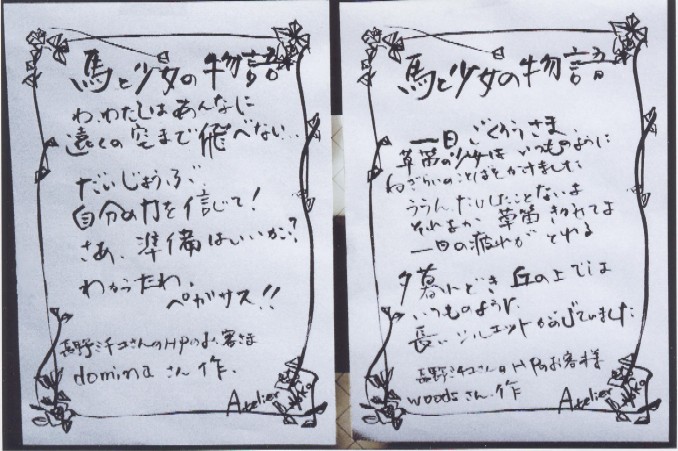 馬と少女の物語
わ、わたしはあんなに
遠くの空まで飛べない...
だいじょうぶ、
自分の力を信じて!
さあ、準備はいいかい?
わかったわ。
ペガサス!!
長野ミチコさんのHPのお客さま
dominaさん作.
Atelier
馬と少女の物語
一日ごくろうさま
草笛の少女はいつものように
ねぎらいのことばをかけました
ううん、たいしたことないよ
それより 草笛 きかれてよ
一日の疲れが とれる
夕暮れどき 丘の上では
いつものように
長いシルエットがのびていました
長野ミチコさんのHPのお客様
woodsさん作
Atelier